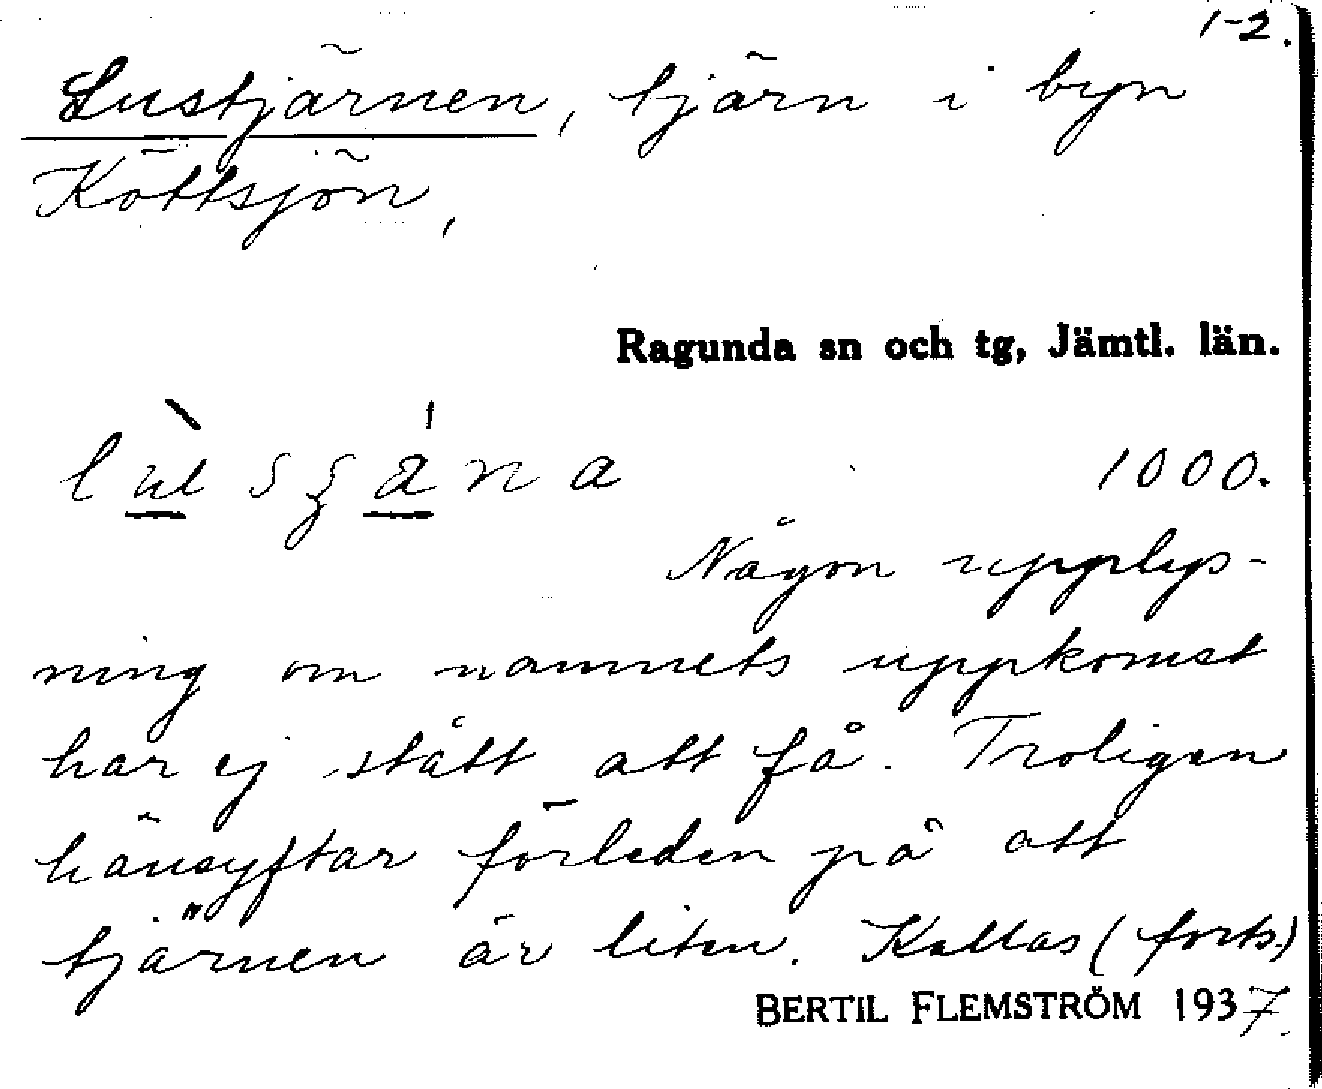 1-2.
Lustjärnen, tjärn i byn
Köttsjön,
Ragunda sn och tg, Jämtl. län.
1000.
Någon upplys-
ning om namnets uppkomst
har ej stått att få. Troligen
hänsyftar förleden på att
tjärnen är liten. Kallas (forts.)
BERTIL FLEMSTRÖM 1937.